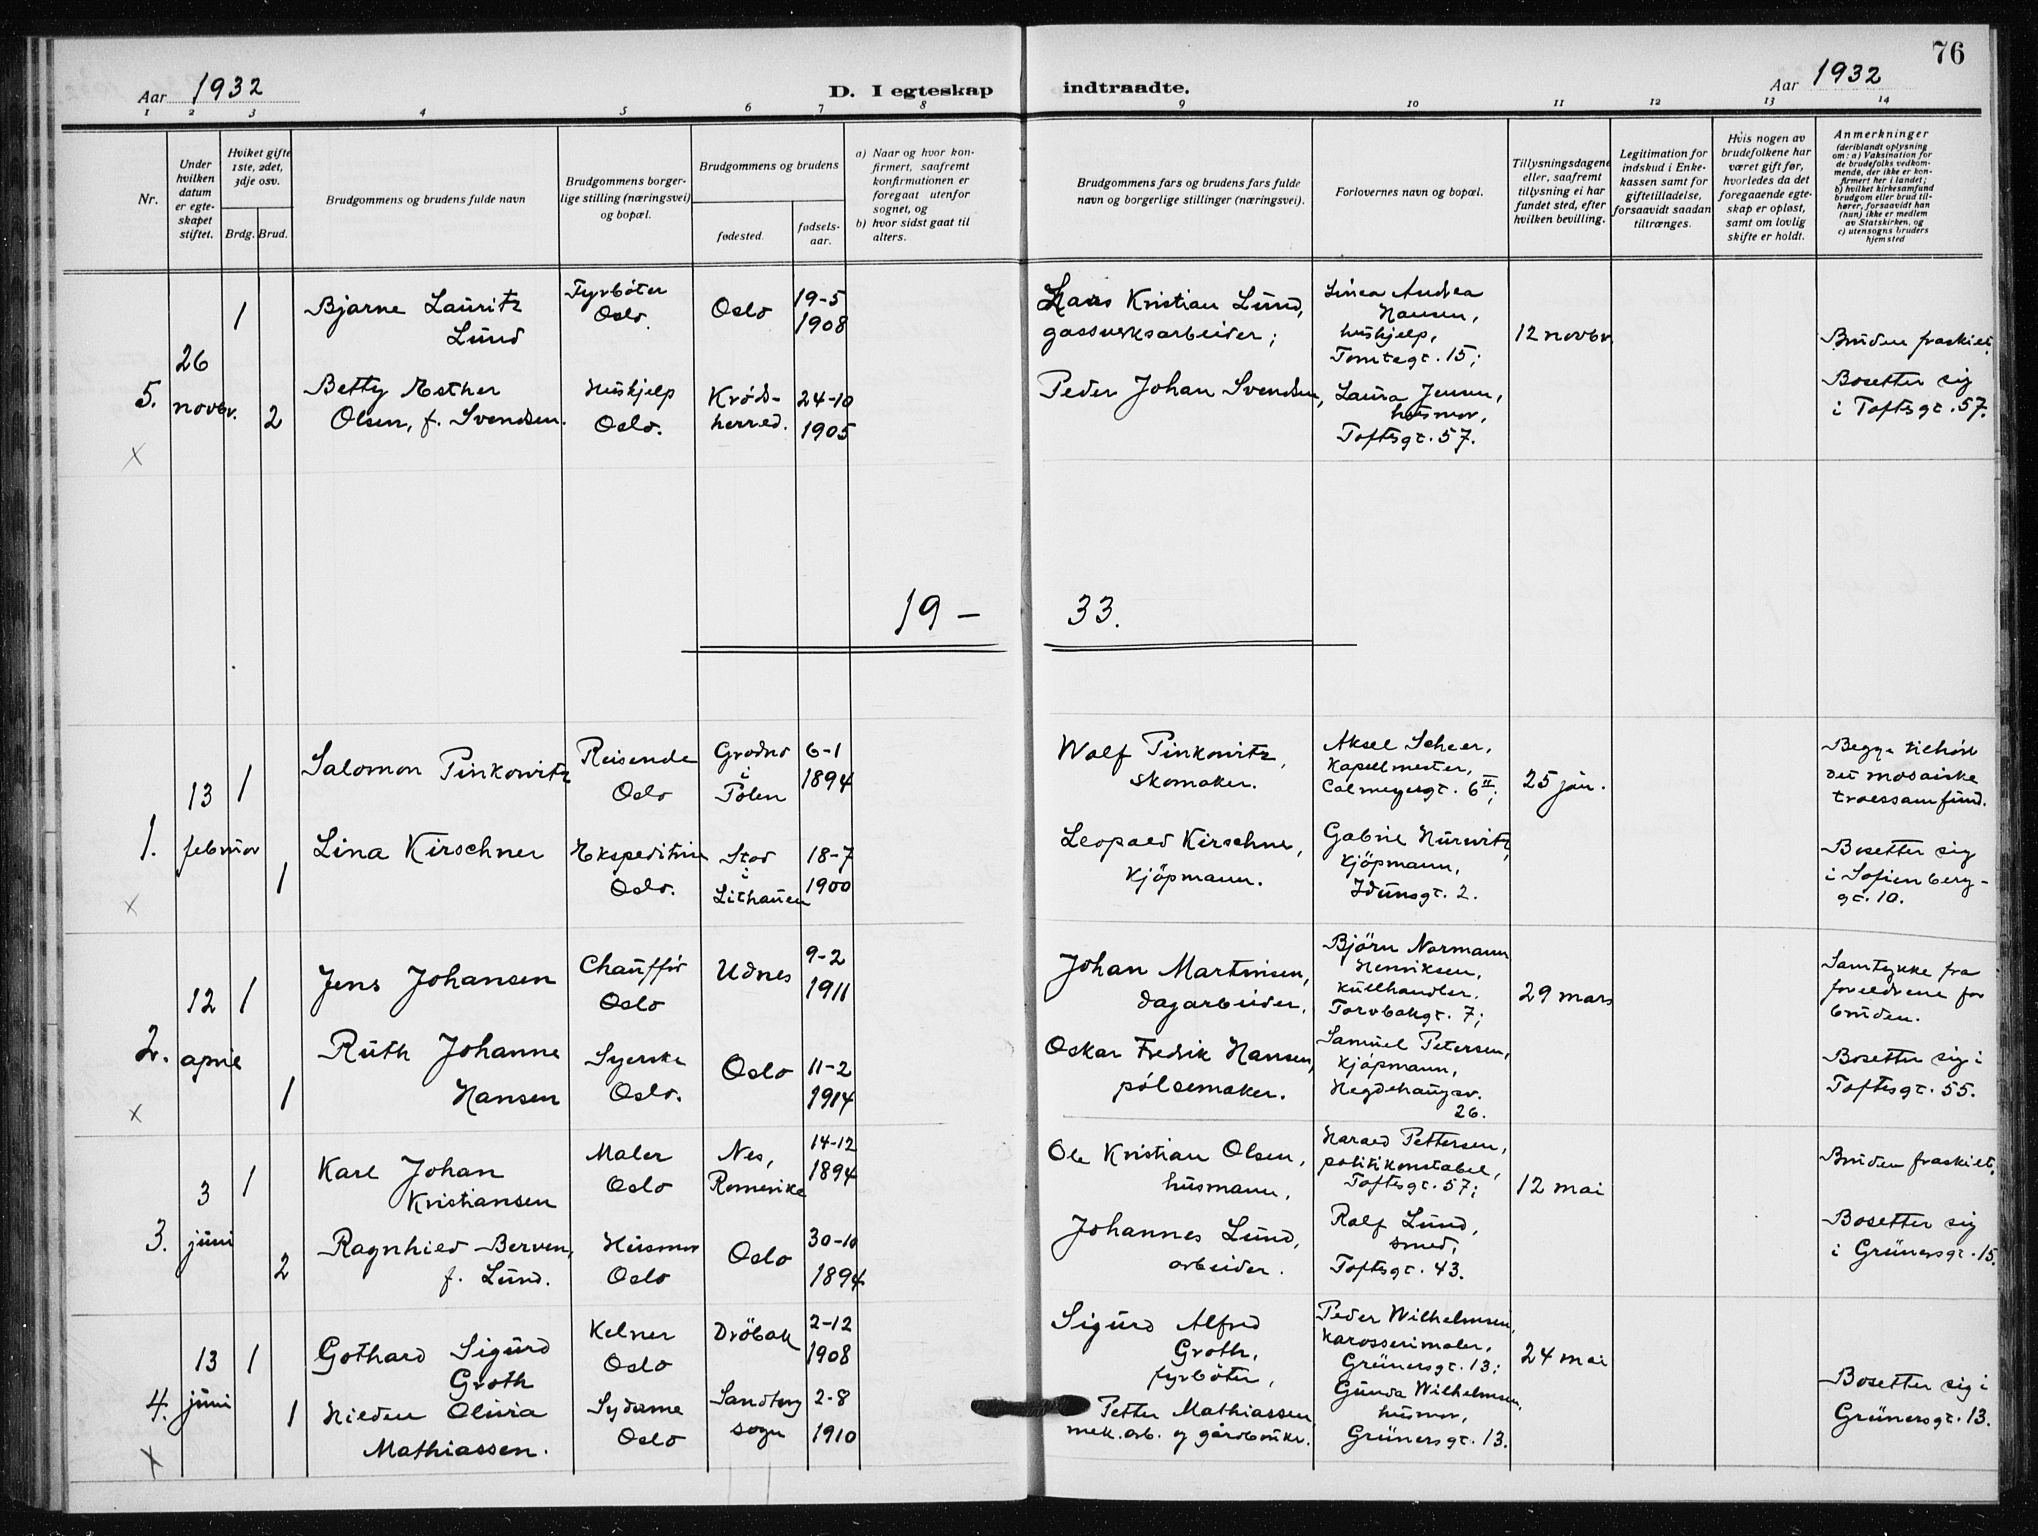 76
Aar 1932
D. I egteskap indtraadte.
Aar 1932
1 2 3 4 5 6 7 8 9 10 11 12 13 14
Nr.
Under
hvilken
datum
er egte-
skapet
stiftet.
Hviket gifte
1ste, 2det,
3dje osv.
Brdg. Brud.
Brudgommens og brudens fulde navn
Brudgommens borger-
lige stilling (næringsvei)
og bopæl.
Brudgommens og brudens
fødested.
fødsels-
aar.
a) Naar og hvor kon-
firmert, saafremt
konfirmationen er
foregaat utenfor
sognet, og
b) hvor sidst gaat til
alters.
Brudgommens fars og brudens fars fulde
navn og borgerlige stillinger (næringsvei).
Forlovernes navn og bopæl.
Tillysningsdagene
eller, saafremt
tillysning ei har
fundet sted, efter
hvilken bevilling.
Legitimation for
indskud i Enke-
kassen samt for
giftetilladelse,
forsaavidt saadan
tiltrænges.
Hvis nogen av
brudefolkene har
været gift før,
hvorledes da det
foregaaende egte-
skap er opløst,
samt om lovlig
skifte er holdt.
Anmerkninger
(deriblandt oplysning
om: a) Vaksination for
de brudefolks vedkom-
mende, der ikke er kon-
firmert her i landet;
b) hvilket kirkesamfund
brudgom eller brud til-
hører, forsaavidt han
(hun) ikke er medlem
av Statskirken, og
c) utensogns bruders
hjemsted
5.
26
novbr.
1
Bjarne Lauritz
Lund
Fyrbøter
Oslo.
Oslo
19-5
1908
Kristian Lund,
gassverksarbeider;
Linea Andrea
Hansen,
hushjelp,
Tomtegt. 15;
12 novbr.
Bruden fraskilt.
2
Betty Esther
Olsen, f. Svendsen.
Hushjelp
Oslo.
Krøds-
herred.
24-10
1905
Peder Johan Svendsen,
Laura Jensen,
husmor,
Toftsgt. 57.
Bosetter sig
i Toftsgt. 57.
x
19 – 33.
1.
13
februar
1
Salomon Pinkowitz
Reisende
Oslo
Grodno
i
Polen
6-1
1894
Wolf Pinkowitz,
skomaker.
Aksel Scheer,
kapellmester,
Calmeyersgt. 6 II;
25 jan.
Begge tilhør
det mosaiske
troessamfund.
1
Lina Kirschner
Ekspeditrise
Oslo.
Stod
i
Lithauen
18-7
1900
Leopold Kirschner,
kjøpmann.
Gabriel Hurwitz,
kjøpmann,
Idunsgt. 2.
Bosetter sig
i Sofienberg-
gt. 10.
x
2.
12
april
1
Jens Johansen
Chauffør
Oslo
Udnes
9-2
1911
Johan Martinsen,
dagarbeider.
Bjørn Normann
Henriksen,
kullhandler.
Torvbakgt. 7;
29 mars
Samtykke fra
foreldrene for
bruden.
1
Ruth Johanne
Hansen
Syerske
Oslo.
Oslo
11-2
1914
Oskar Fredrik Hansen,
pølsemaker.
Samuel Petersen,
kjøpmann,
Hegdehaugsv.
26.
Bosetter sig i
Toftesgt. 55.
x
3.
3
juni
1
Karl Johan
Kristiansen
Maler
Oslo
Nes,
Romerike
14-12
1894
Ole Kristian Olsen,
husmann,
Harald Pettersen,
politikonstabel,
Toftsgt. 57;
12 mai
Bruden fraskilt.
2
Ragnhild Berven,
f. Lund.
Husmor
Oslo
Oslo
30-10
1894
Johannes Lund,
arbeider.
Rolf Lund,
smed,
Toftsgt. 43.
Bosetter sig
i Grünersgt. 15.
4.
13
juni
1
Gothard Sigurd
Groth
Kelner
Oslo
Drøbak
2-12
1908
Sigurd Alfred
Groth,
fyrbøter,
Peder Wilhelmsen,
karosserimaler,
Grünersgt. 13;
24 mai
1
Hildur Olivia
Mathiassen.
Sydame
Oslo
Sandberg
sogn
2-8
1910
Petter Mathiassen
mek. arb. og gårdbruker.
Gunda Wilhelmsen,
husmor,
Grünersgt. 13.
Bosetter sig i
Grünersgt. 13.
x